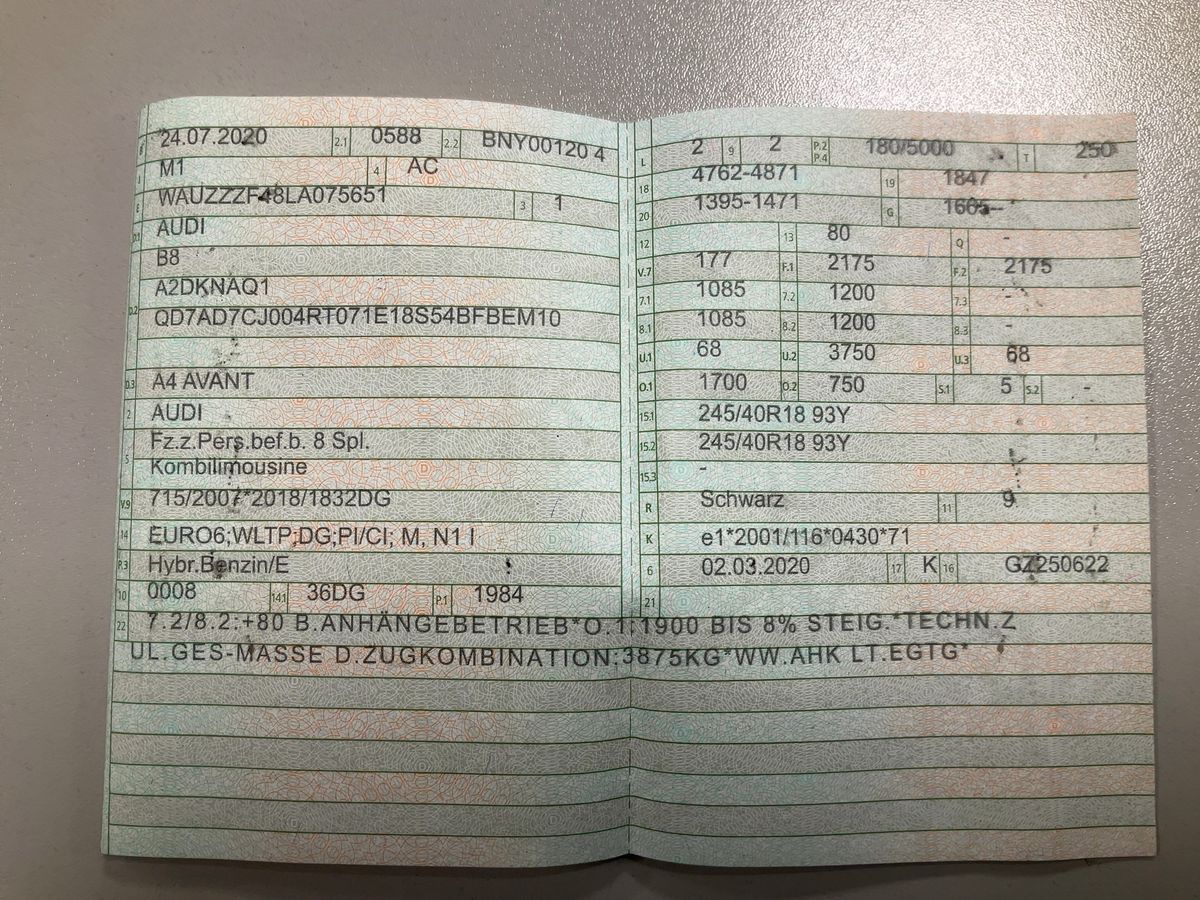 B 24.07.2020 2.1 0588 2.2 BNY00120 4
J M1 4 AC
E WAUZZZF48LA075651 3 1
D.1 AUDI
B8
D.2 A2DKNAQ1
QD7AD7CJ004RT071E18S54BFBEM10
D.3 A4 AVANT
2 AUDI
5 Fz.z.Pers.bef.b. 8 Spl.
Kombilimousine
V.9 715/2007*2018/1832DG
14 EURO6;WLTP;DG;PI/CI; M, N1 I
P.3 Hybr.Benzin/E
10 0008 14.1 36DG P.1 1984
L 2 9 2 P.2 P.4 180/5000 T 250
18 4762-4871 19 1847
20 1395-1471 G 1605--
12 13 80 Q -
V.7 177 F.1 2175 F.2 2175
7.1 1085 7.2 1200 7.3 -
8.1 1085 8.2 1200 8.3 -
U.1 68 U.2 3750 U.3 68
O.1 1700 O.2 750 S.1 5 S.2 -
15.1 245/40R18 93Y
15.2 245/40R18 93Y
15.3 -
R Schwarz 11 9
K e1*2001/116*0430*71
6 02.03.2020 17 K 16 GZ250622
21
22 7.2/8.2:+80 B.ANHÄNGEBETRIEB*O.1:1900 BIS 8% STEIG.*TECHN.Z
UL.GES-MASSE D.ZUGKOMBINATION:3875KG*WW.AHK LT.EGTG*